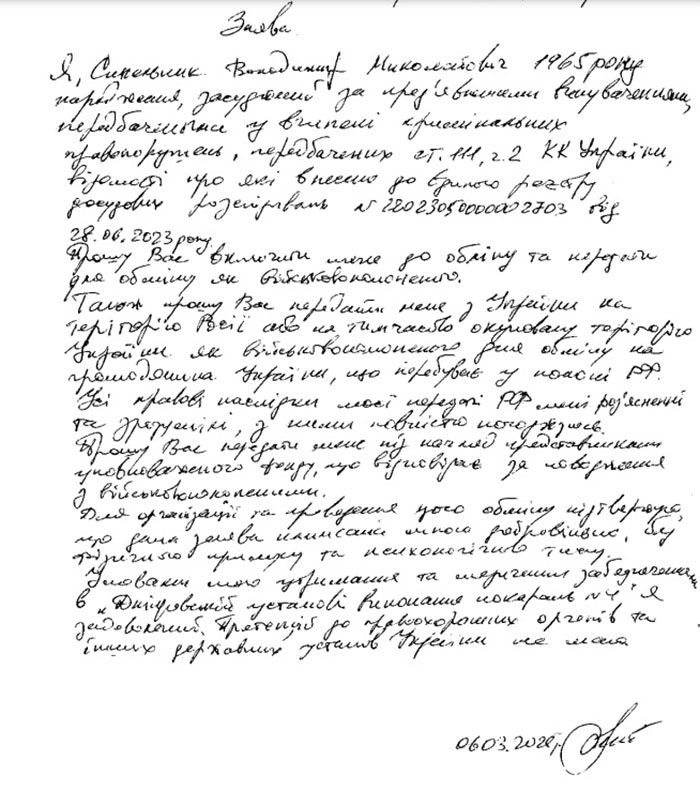 Заява.
Я, Синельник Володимир Миколайович 1965 року
народження, засуджений за пред'явленими винуваченнями,
передбаченими у вчинені кримінальних
правопорушень, передбачених ст. 111, ч. 2 КК України,
відомості про які внесено до Єдиного реєстру
досудових розслідувань № 22023050000002703 від
28.06.2023 року.
Прошу Вас включити мене до обміну та передати
для обміну як військовополоненого.
Також прошу Вас передати мене з України на
територію Росії або на тимчасово окуповану територію
України як військовополоненого для обміну на
громадянина України, що перебуває у полоні РФ.
Усі правові наслідки моєї передачі РФ мені роз'яснені
та зрозумілі, з ними повністю погоджуюсь.
Прошу Вас передати мене під нагляд представникам
уповноваженого фонду, що відповідає за поводження
з військовополоненими.
Для організації та проведення цього обміну підтверджую,
що дана заява написана мною добровільно, без
фізичного примусу та психологічного тиску.
Умовами мого утримання та медичним забезпеченням
в "Дніпровській установі виконання покарань №4" я
задоволений. Претензій до правоохоронних органів та
інших державних установ України не маю
06.03.202